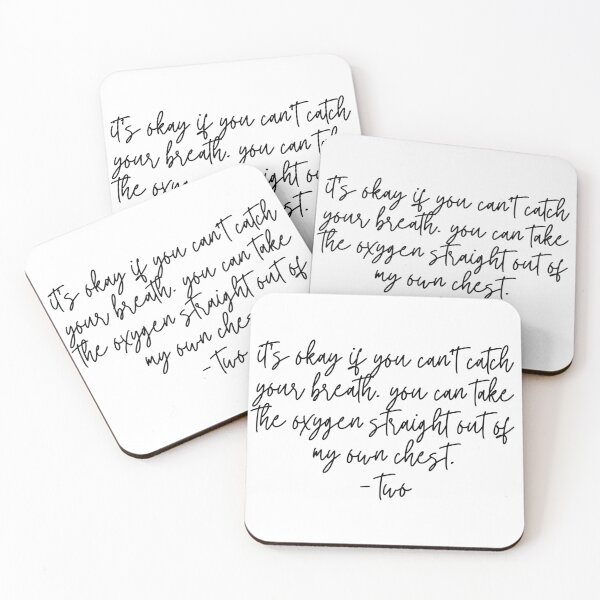 it's okay if you can't catch
your breath. you can
the
it's okay if you can't catch
your breath. you can take
the oxygen straight out of
my own chest.
it's okay if you can't catch
your breath. you can take
the oxygen straight out of
my own
-two
it's okay if you can't catch
your breath. you can take
the oxygen straight out of
my own chest.
-two